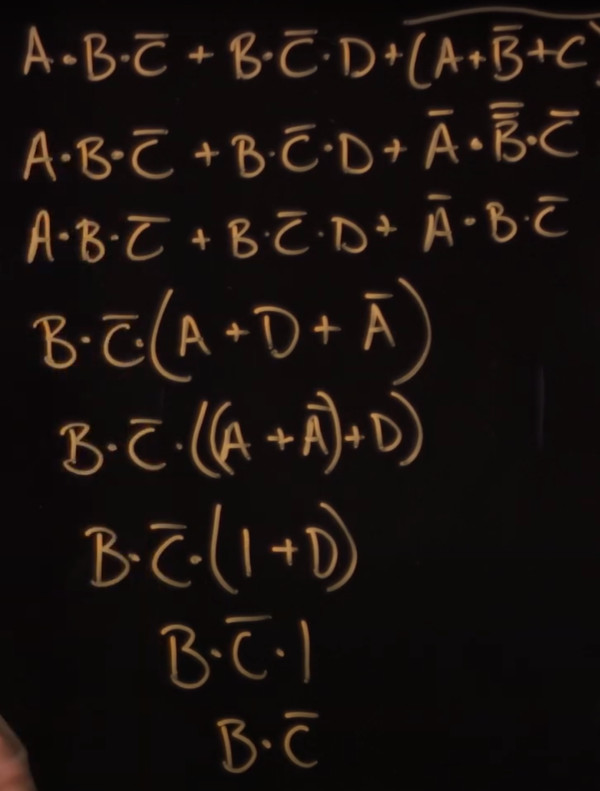 A·B·C̅ + B·C̅·D + (A+B̅+C)̅
A·B·C̅ + B·C̅·D + A̅·B̿·C̅
A·B·C̅ + B·C̅·D + A̅·B·C̅
B·C̅·(A + D + A̅)
B·C̅·((A + A̅)+D)
B·C̅·(1+D)
B·C̅·1
B·C̅